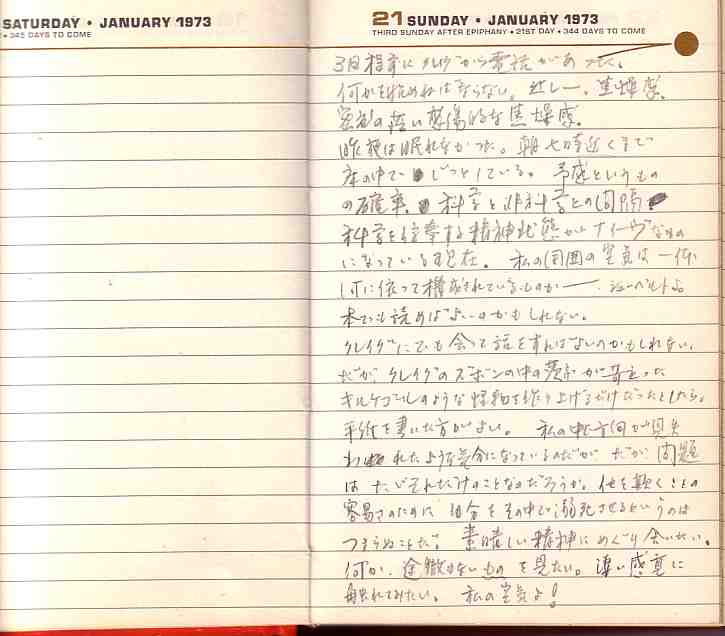 SATURDAY • JANUARY 1973
• 345 DAYS TO COME
21 SUNDAY • JANUARY 1973
THIRD SUNDAY AFTER EPIPHANY • 21ST DAY • 344 DAYS TO COME
3日程前に クレイグから電話があった。
何かを始めねばならない。 焦燥感、
密度の薄い感傷的な焦燥感。
昨夜は眠れなかった。 朝七時近くまで
床の中で じっとしている。 予感というもの
の確率、 科学と非科学との間隔
科学を 精神状態がナイーヴなもの
になっている現在。 私の周囲の空気は一体
何に依って構成されているものか ―― シューベルト
本でも読めばよいのかもしれない。
クレイグにでも会って話をすればよいのかもしれない。
だが、クレイグのズボンの中の
キルケゴールのような怪物を作り上げるだけだったとしたら、
手紙を書いた方がよい。 私の中で方向が見失
われたような気分になっているのだが、だが 問題
は ただそれだけのことなのだろうか。 他を欺くことの
容易さのために 自分をその中で溺死させるというのは
つまらぬことだ。 素晴しい精神にめぐり会いたい。
何か、途徹もないものを見たい。 凄い感覚に
触れてみたい。 私の空気よ!